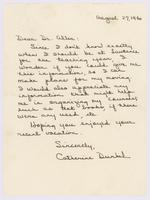 August 27, 1960
Dear Dr. Allen:
Since I don't know exactly
when I should be at
for the teaching year I
wonder if you could give me
this information so I can
make plans for my moving.
I would also appreciate any
information that might help
me in organizing my courses
such as text books if there
were any used etc.
Hoping you enjoyed your
recent vacation.
Sincerely,
Catherine